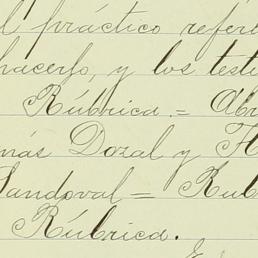 l práctico refere
hacerlo, y los testi
Rúbrica. = Abr
más Dozal y H
Sandoval = Rub
Rúbrica.